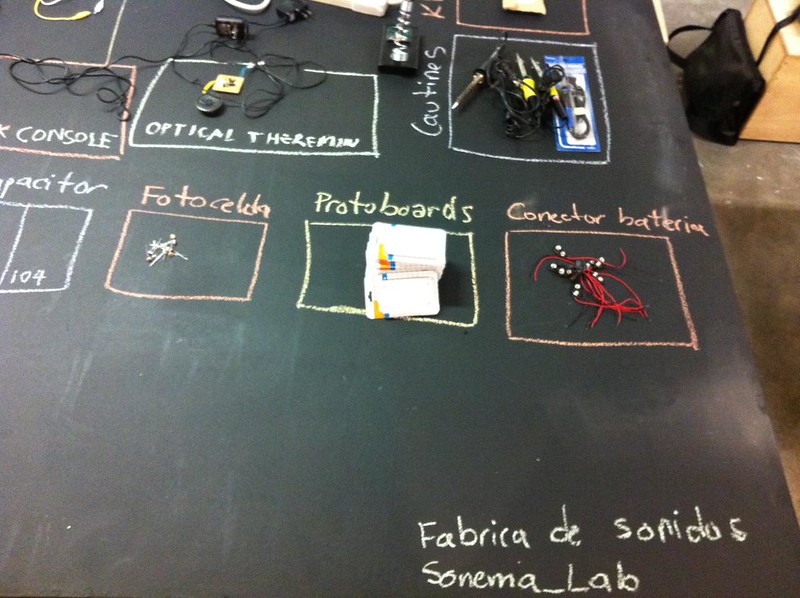 K CONSOLE
OPTICAL THEREMIN
Cautines
pacitor
104
Fotocelda
Protoboards
Conector bateria
Fabrica de sonidos
Sonema_Lab